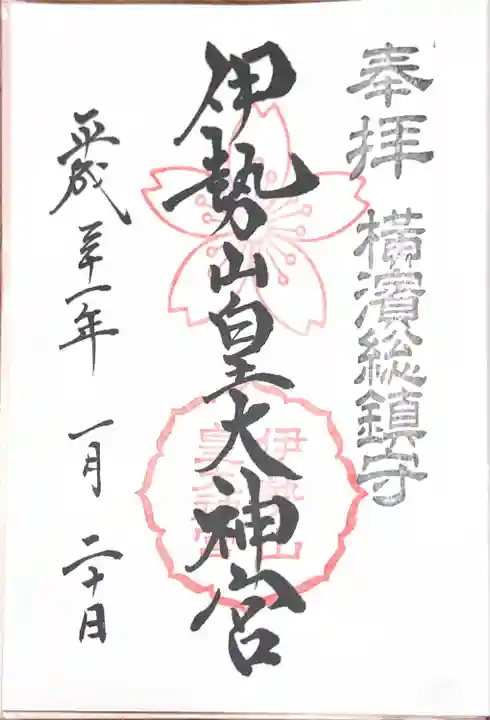 奉拝 横濱総鎮守
伊勢山皇大神宮
伊勢山
皇大神宮
平成三十一年 一月 二十日